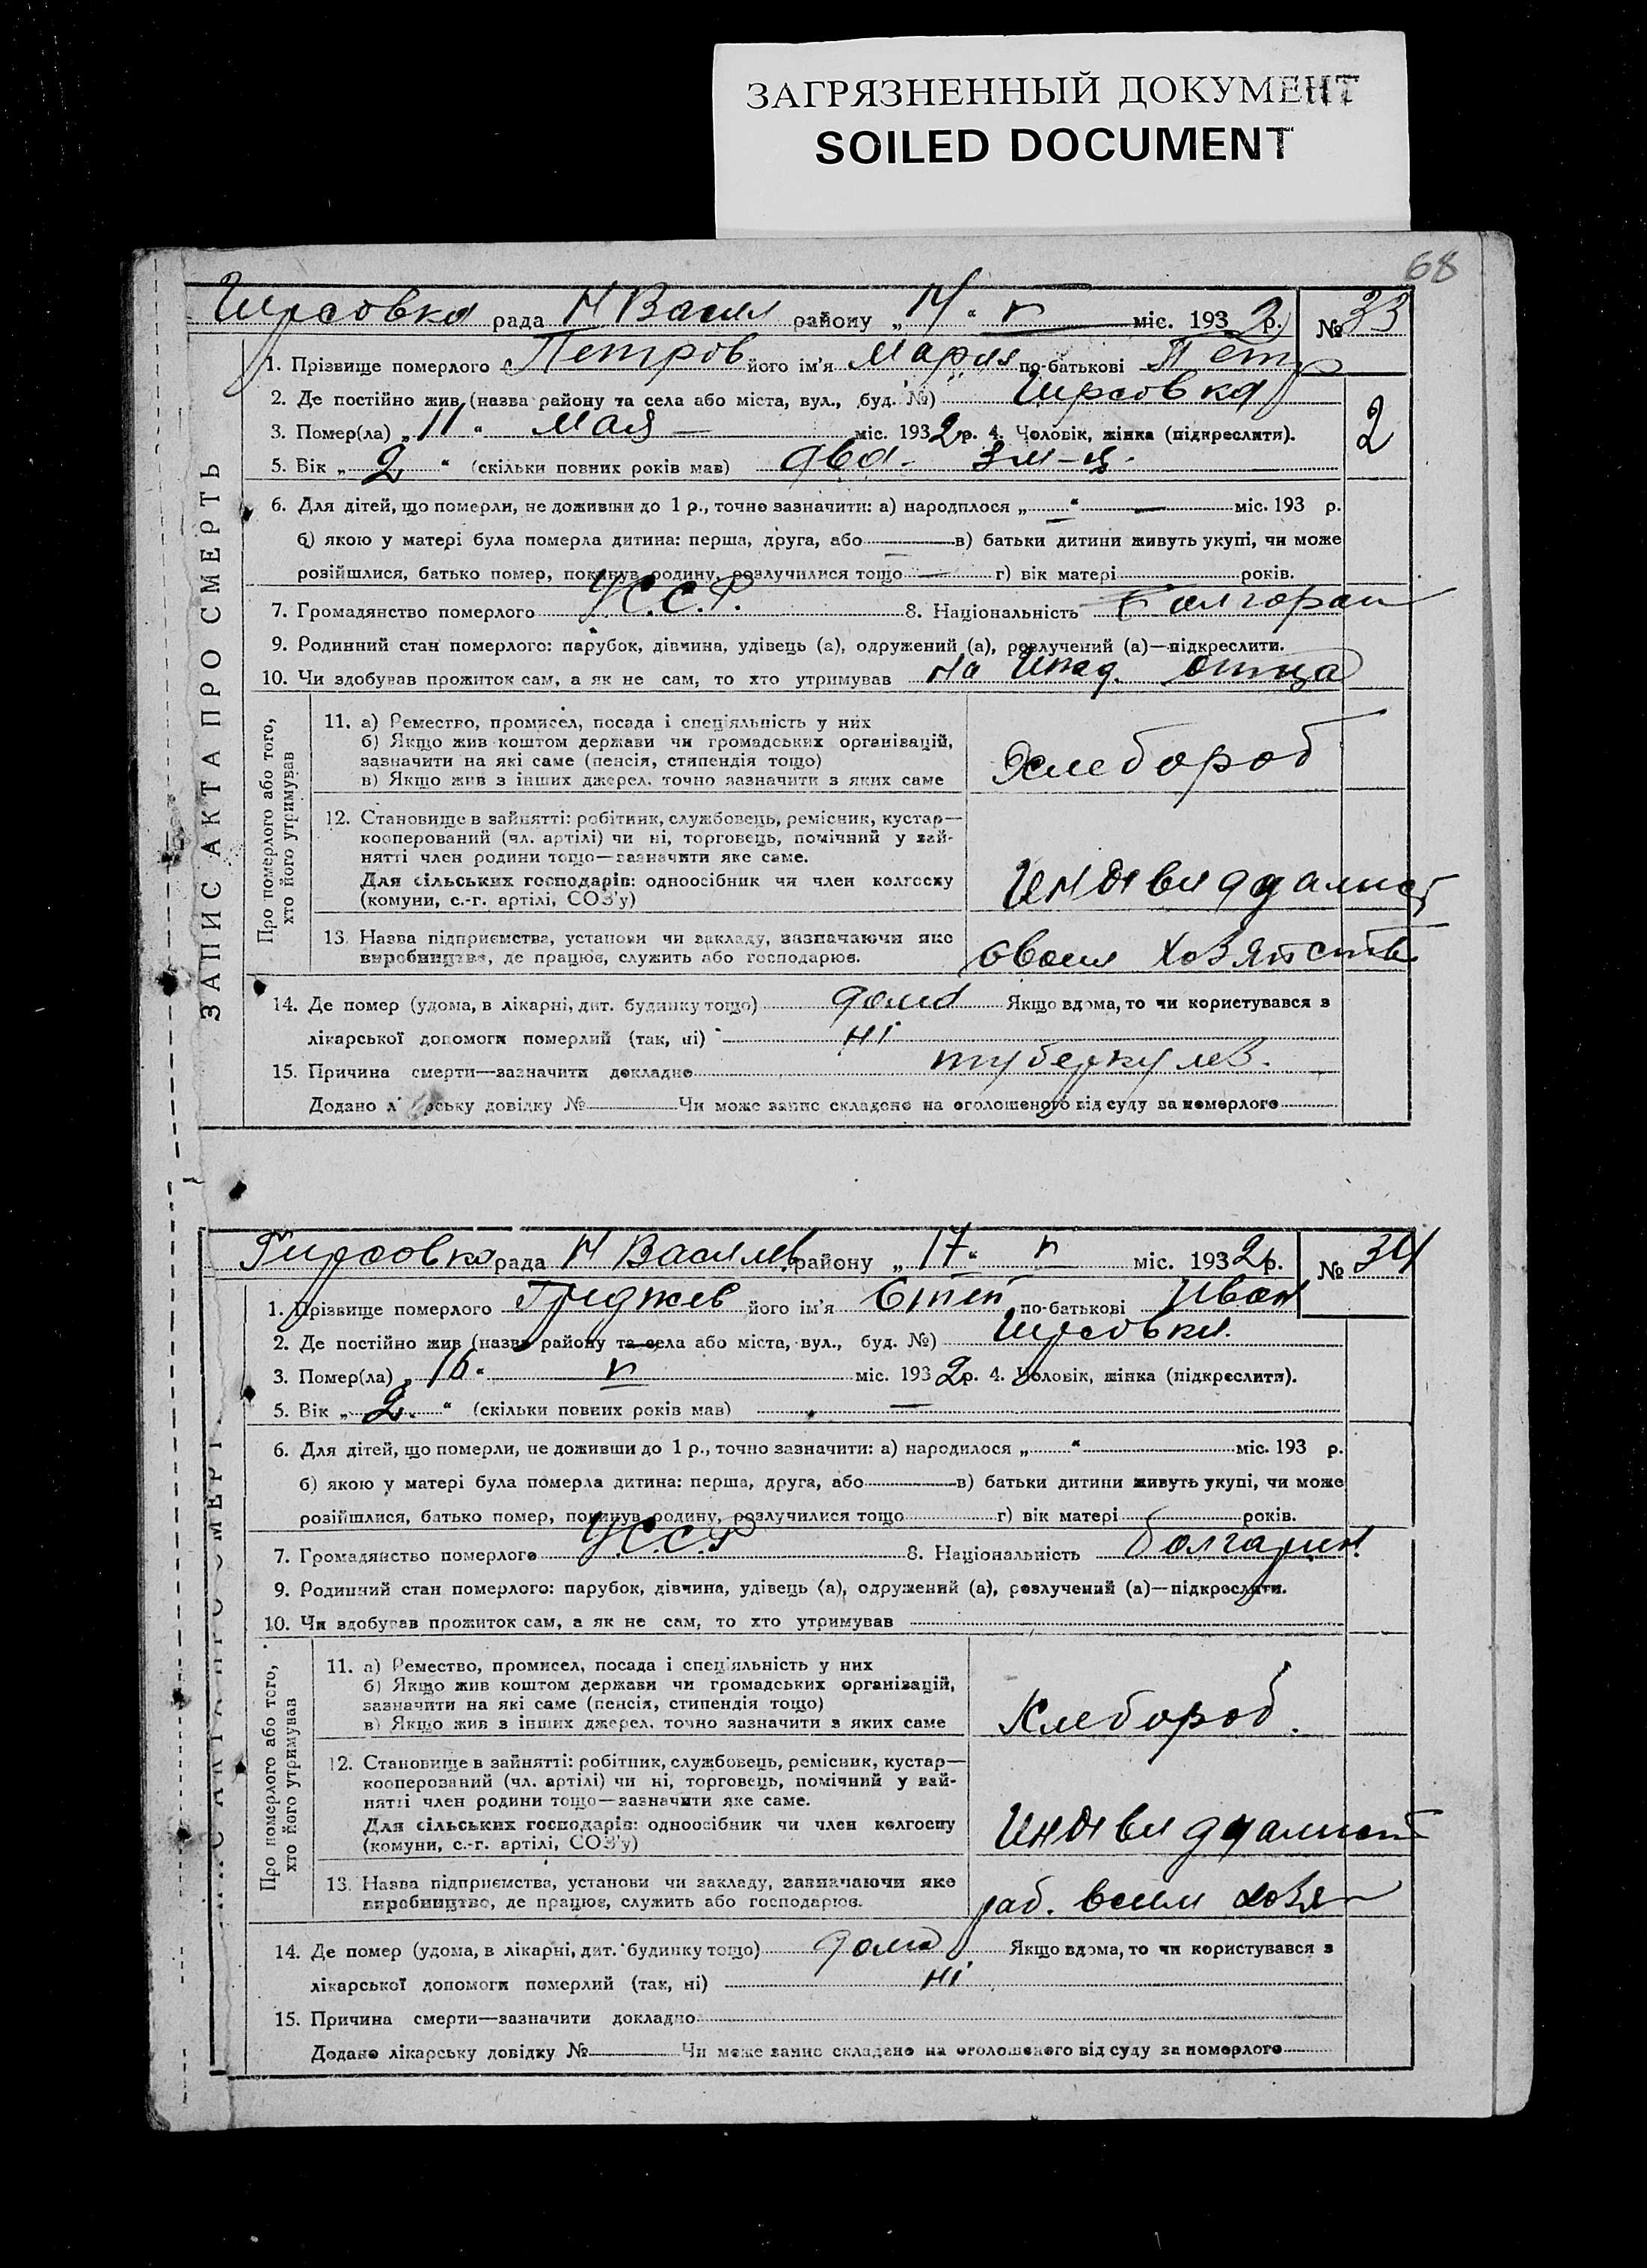 ЗАГРЯЗНЕННЫЙ ДОКУМЕНТ
SOILED DOCUMENT
68
Гирсовка рада Н Васил району „14“ V міс. 1932 р. № 33
1. Прізвище померлого Петров його ім'я Мария по-батькові Петр
2. Де постійно жив (назва району та села або міста, вул., буд. №) Гирсовка
3. Помер(ла) „11“ Мая — міс. 1932 р. 4. Чоловік, жінка (підкреслити).
2
5. Вік „2“ (скільки повних років мав) два - 3 м-ц.
6. Для дітей, що померли, не доживши до 1 р., точно зазначити: а) народилося „—“ — міс. 193 р.
б) якою у матері була померла дитина: перша, друга, або — в) батьки дитини живуть укупі, чи може
розійшлися, батько помер, покинув родину, розлучилися тощо — г) вік матері років.
7. Громадянство померлого У.С.С.Р. 8. Національність
9. Родинний стан померлого: парубок, дівчина, удівець (а), одружений (а), розлучений (а)—підкреслити.
10. Чи здобував прожиток сам, а як не сам, то хто утримував На Ижд. отца
ЗАПИС АКТА ПРО СМЕРТЬ
Про померлого або того, хто його утримував
11. а) Ремество, промисел, посада і спеціяльність у них
б) Якщо жив коштом держави чи громадських організацій,
зазначити на які саме (пенсія, стипендія тощо)
в) Якщо жив з інших джерел, точно зазначити з яких саме
Хлебороб
12. Становище в зайнятті: робітник, службовець, ремісник, кустар—
кооперований (чл. артілі) чи ні, торговець, помічний у зай-
нятті член родини тощо—зазначити яке саме.
Для сільських господарів: одноосібник чи член колгоспу
(комуни, с.-г. артілі, СОЗ'у)
Индивидуалист
13. Назва підприємства, установи чи закладу, зазначаючи яке
виробництво, де працює, служить або господарює.
своем хозяйстве
14. Де помер (удома, в лікарні, дит. будинку тощо) дома Якщо вдома, то чи користувався з
лікарської допомоги померлий (так, ні) ні
15. Причина смерти—зазначити докладно туберкулез.
Додано лікарську довідку № Чи може запис складено на оголошеного від суду за померлого
Гирсовка рада Н Василев району „17“ V міс. 1932 р. № 34
1. Прізвище померлого його ім'я Степ по-батькові Иван
2. Де постійно жив (назва району та села або міста, вул., буд. №) Гирсовка.
3. Помер(ла) „16“ V міс. 1932 р. 4. Чоловік, жінка (підкреслити).
5. Вік „2.“ (скільки повних років мав) —
6. Для дітей, що померли, не доживши до 1 р., точно зазначити: а) народилося „ “ міс. 193 р.
б) якою у матері була померла дитина: перша, друга, або в) батьки дитини живуть укупі, чи може
розійшлися, батько помер, покинув родину, розлучилися тощо г) вік матері років.
7. Громадянство померлого У.С.С.Р 8. Національність болгарин
9. Родинний стан померлого: парубок, дівчина, удівець (а), одружений (а), розлучений (а)—підкреслити.
10. Чи здобував прожиток сам, а як не сам, то хто утримував
ЗАПИС АКТА ПРО СМЕРТЬ
Про померлого або того, хто його утримував
11. а) Ремество, промисел, посада і спеціяльність у них
б) Якщо жив коштом держави чи громадських організацій,
зазначити на які саме (пенсія, стипендія тощо)
в) Якщо жив з інших джерел, точно зазначити з яких саме
Хлебороб.
12. Становище в зайнятті: робітник, службовець, ремісник, кустар—
кооперований (чл. артілі) чи ні, торговець, помічний у зай-
нятті член родини тощо—зазначити яке саме.
Для сільських господарів: одноосібник чи член колгоспу
(комуни, с.-г. артілі, СОЗ'у)
Индивидуалист
13. Назва підприємства, установи чи закладу, зазначаючи яке
виробництво, де працює, служить або господарює.
раб. всим хозя
14. Де помер (удома, в лікарні, дит. будинку тощо) дома Якщо вдома, то чи користувався з
лікарської допомоги померлий (так, ні) ні
15. Причина смерти—зазначити докладно
Додано лікарську довідку № Чи може запис складено на оголошеного від суду за померлого